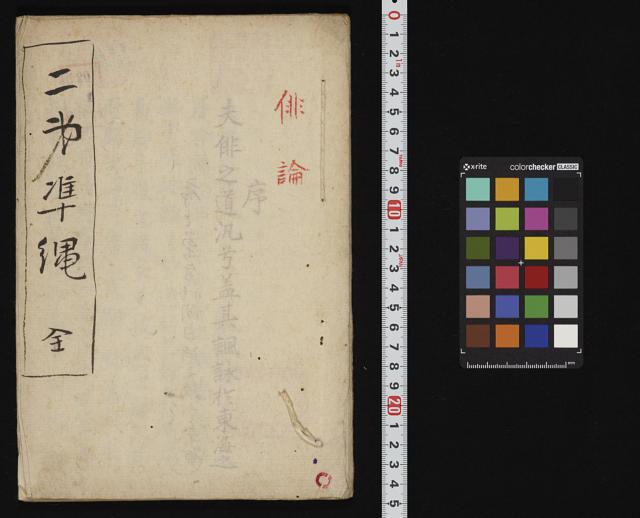 俳論
二弟準縄 全
序
夫俳之道汎兮蓋其諷詠於東海之
0 1 2 3 4 5 6 7 8 9 10 1 2 3 4 5 6 7 8 9 20 1 2 3 4 5
x-rite colorchecker CLASSIC